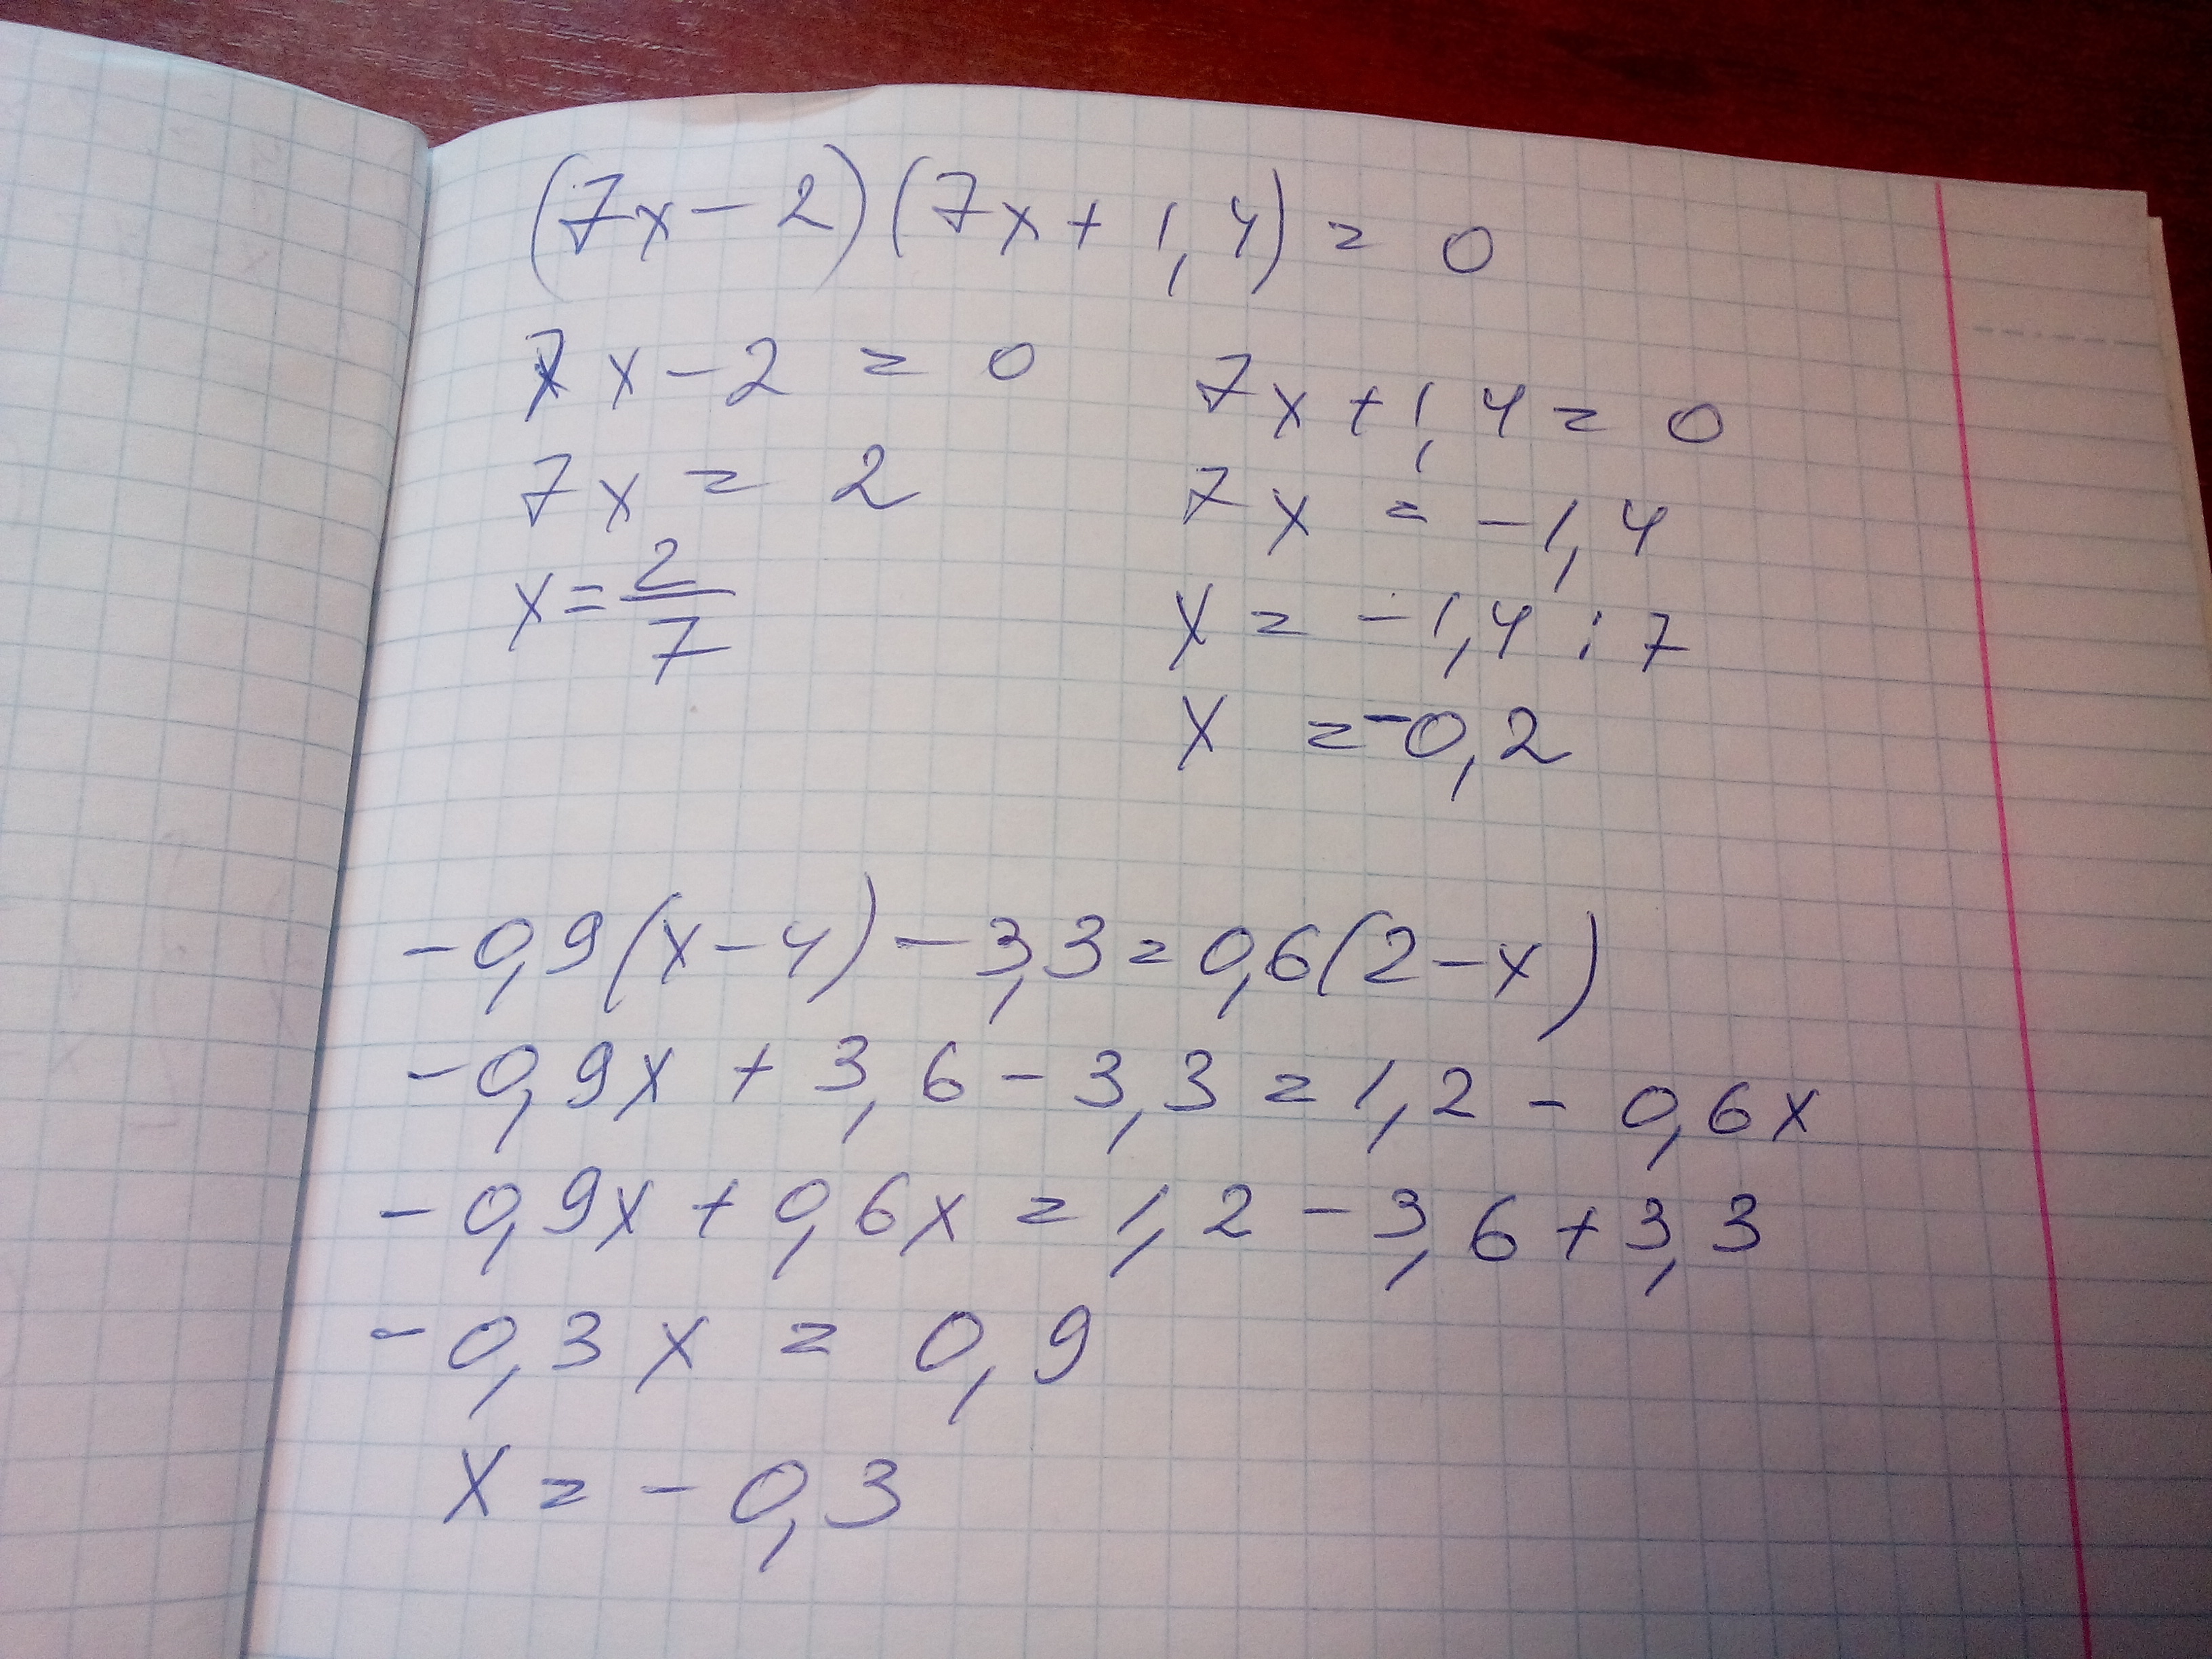 (7x - 2)(7x + 1,4) = 0
7x - 2 = 0
7x = 2
x = 2/7
7x + 1,4 = 0
7x = -1,4
x = -1,4 : 7
x = -0,2
-0,9(x - 4) - 3,3 = 0,6(2 - x)
-0,9x + 3,6 - 3,3 = 1,2 - 0,6x
-0,9x + 0,6x = 1,2 - 3,6 + 3,3
-0,3x = 0,9
x = -0,3